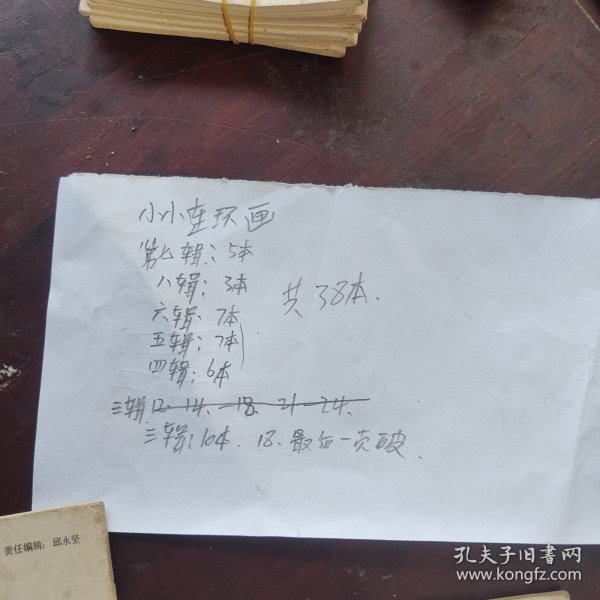 小小连环画
第七辑：5本
八辑：3本
共38本.
六辑. 7本
五辑：7本
四辑：6本
三辑 12 14. 18. 21 24.
三辑：10本. 18. 最后一页破.
责任编辑：邱永坚
孔夫子旧书网
www.kongfz.com